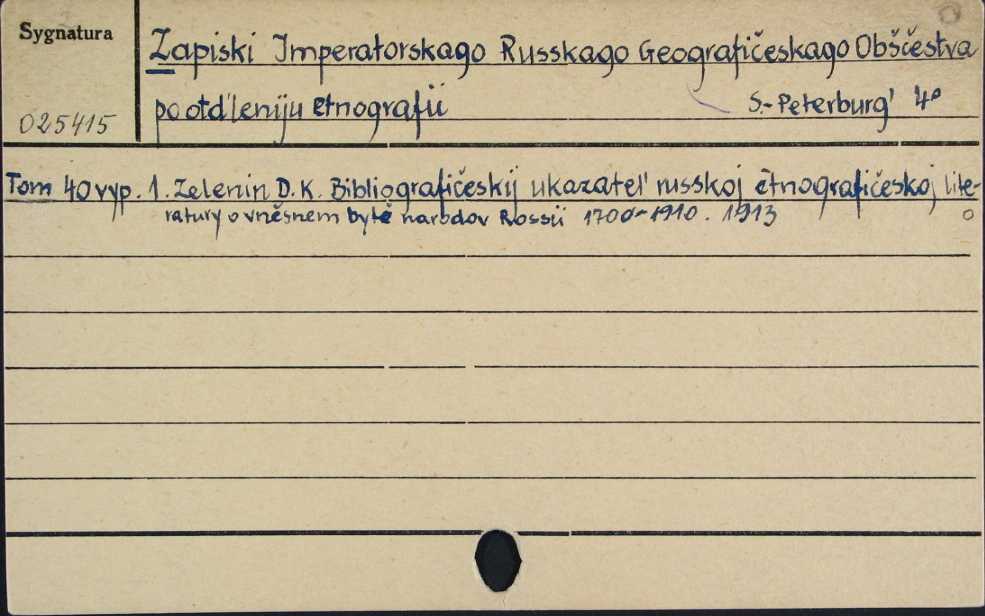 Sygnatura
Zapiski Imperatorskago Russkago Geografičeskago Obščestva
025415
po otd'leniju etnografii S.-Peterburg' 4°
Tom 40 vyp. 1. Zelenin D.K. Bibliografičeskij ukazatel' russkoj ètnografičeskoj lite-
ratury o vněšnem bytě narodov Rossii 1700-1910. 1913